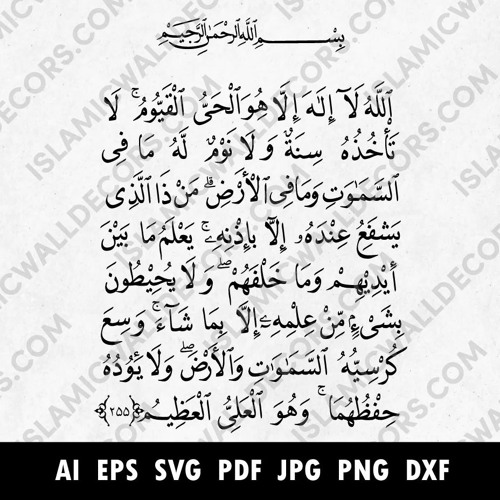 بِسْمِ اللَّهِ الرَّحْمَٰنِ الرَّحِيمِ
اللَّهُ لَا إِلَٰهَ إِلَّا هُوَ الْحَيُّ الْقَيُّومُ ۚ لَا
تَأْخُذُهُ سِنَةٌ وَلَا نَوْمٌ لَّهُ مَا فِي
السَّمَٰوَٰتِ وَمَا فِي الْأَرْضِ ۗ مَن ذَا الَّذِي
يَشْفَعُ عِندَهُۥ إِلَّا بِإِذْنِهِۦ ۚ يَعْلَمُ مَا بَيْنَ
أَيْدِيهِمْ وَمَا خَلْفَهُمْ ۖ وَلَا يُحِيطُونَ
بِشَيْءٍ مِّنْ عِلْمِهِۦٓ إِلَّا بِمَا شَآءَ ۚ وَسِعَ
كُرْسِيُّهُ السَّمَٰوَٰتِ وَالْأَرْضَ ۖ وَلَا يَئُودُهُ
حِفْظُهُمَا ۚ وَهُوَ الْعَلِيُّ الْعَظِيمُ ﴿٢٥٥﴾
AI EPS SVG PDF JPG PNG DXF
ISLAMICWALLDECORS.COM